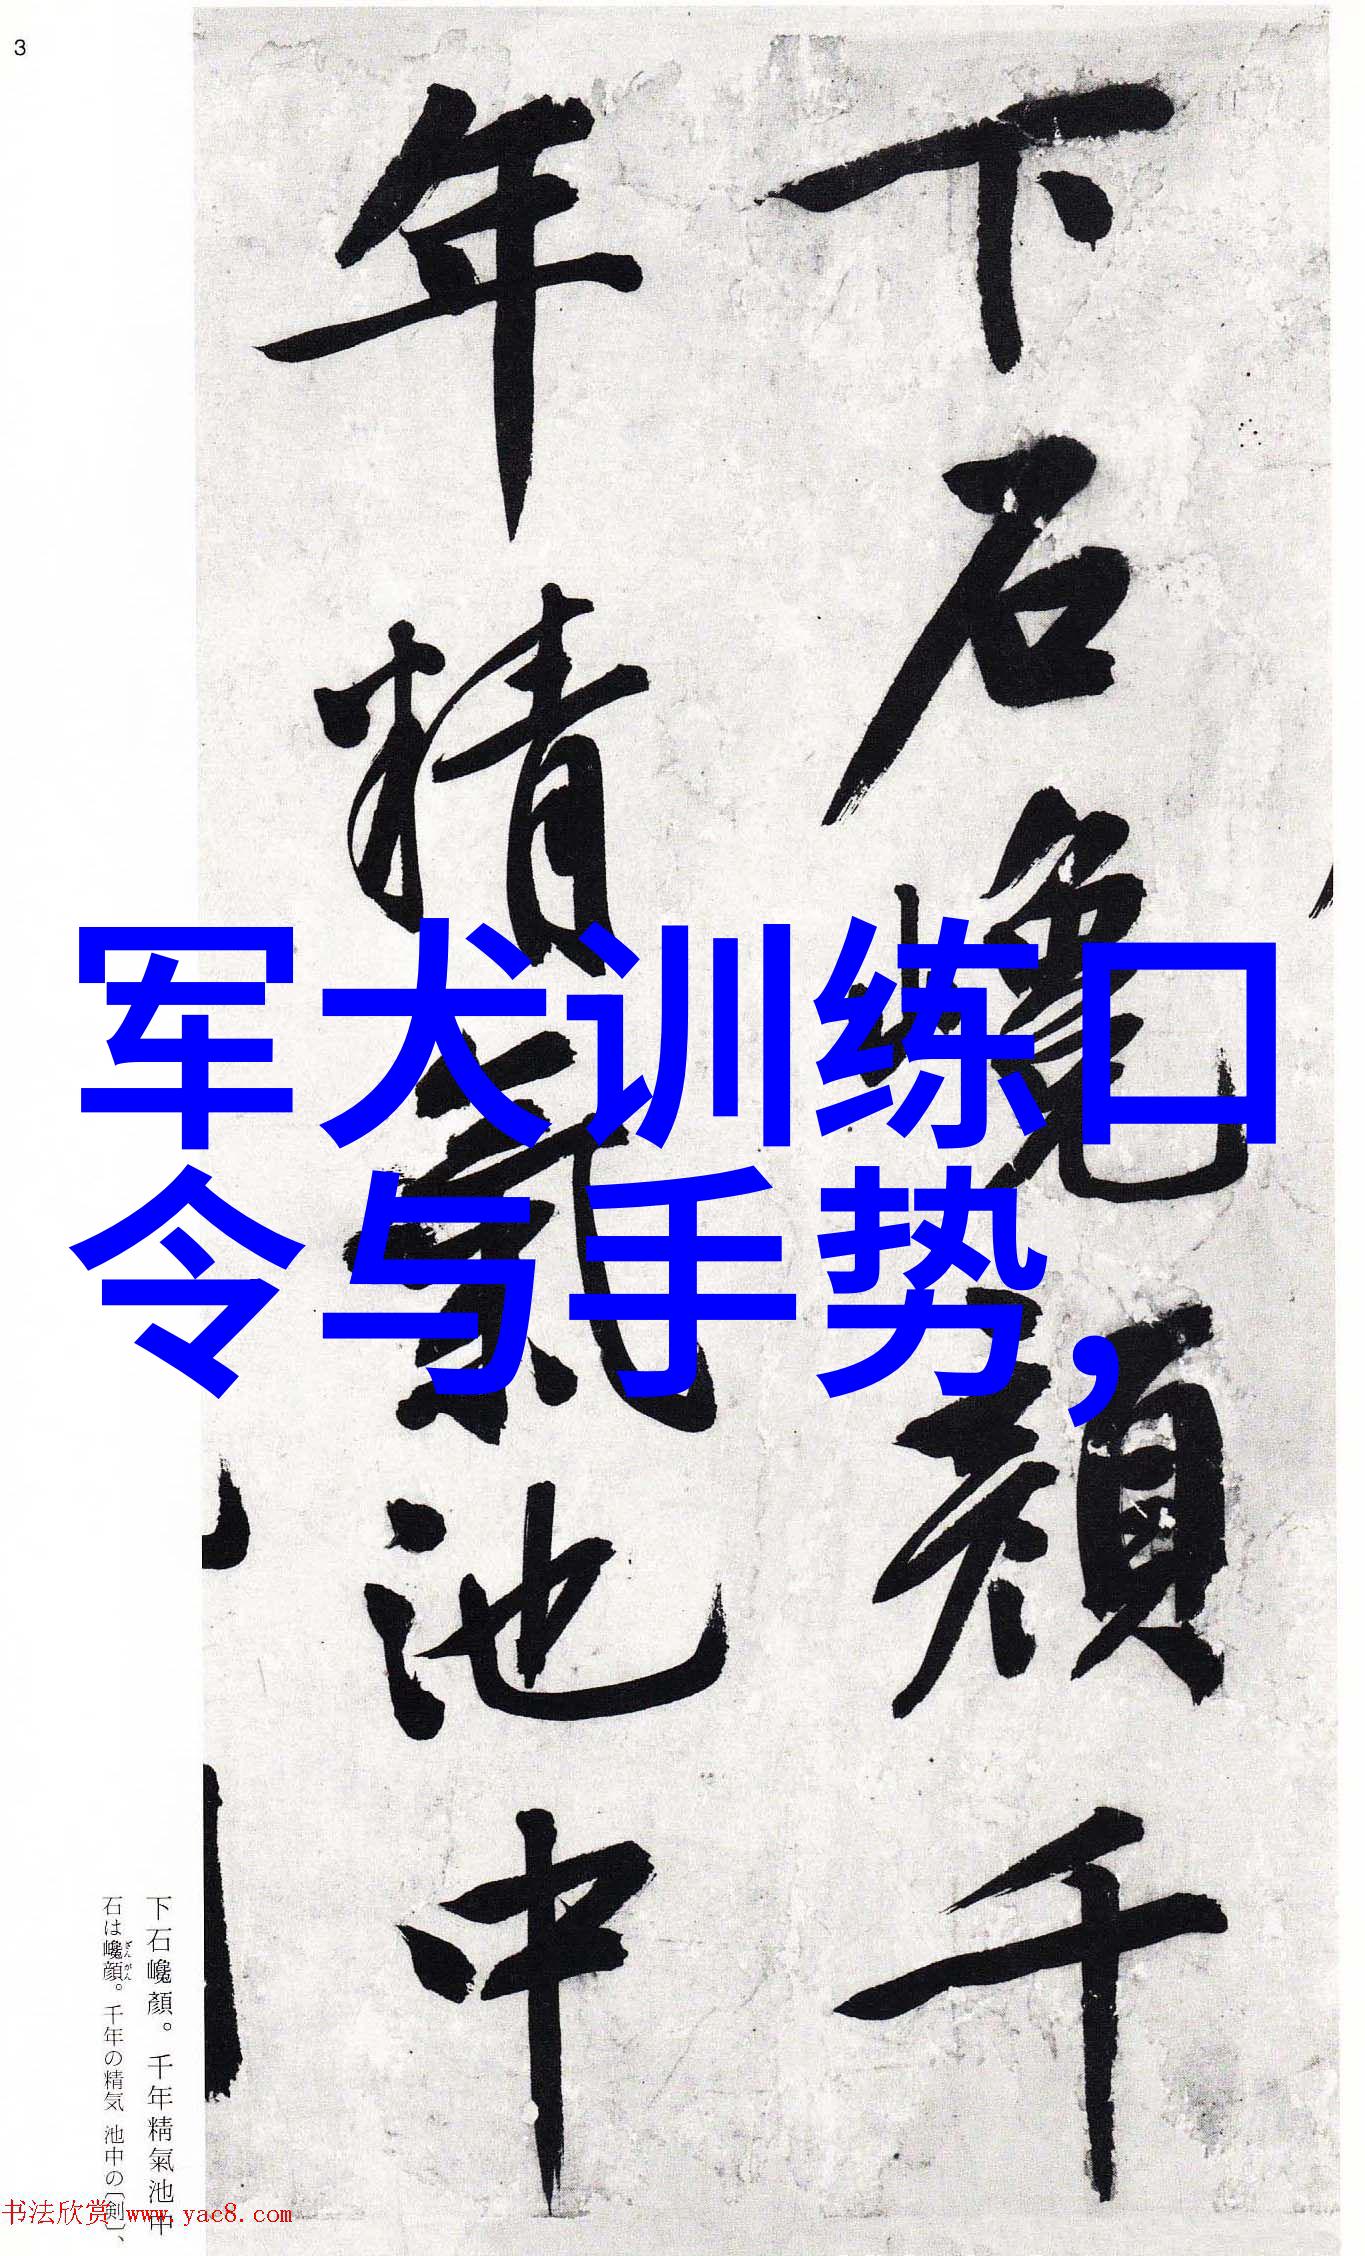 3
下石巉顏千
年精氣池中
军犬训练口
令与手势，
下石巉顏。千年精氣池中
石は巉顔。千年の精気 池中の〔剣〕、
ざんがん
书法欣赏 www.yac8.com